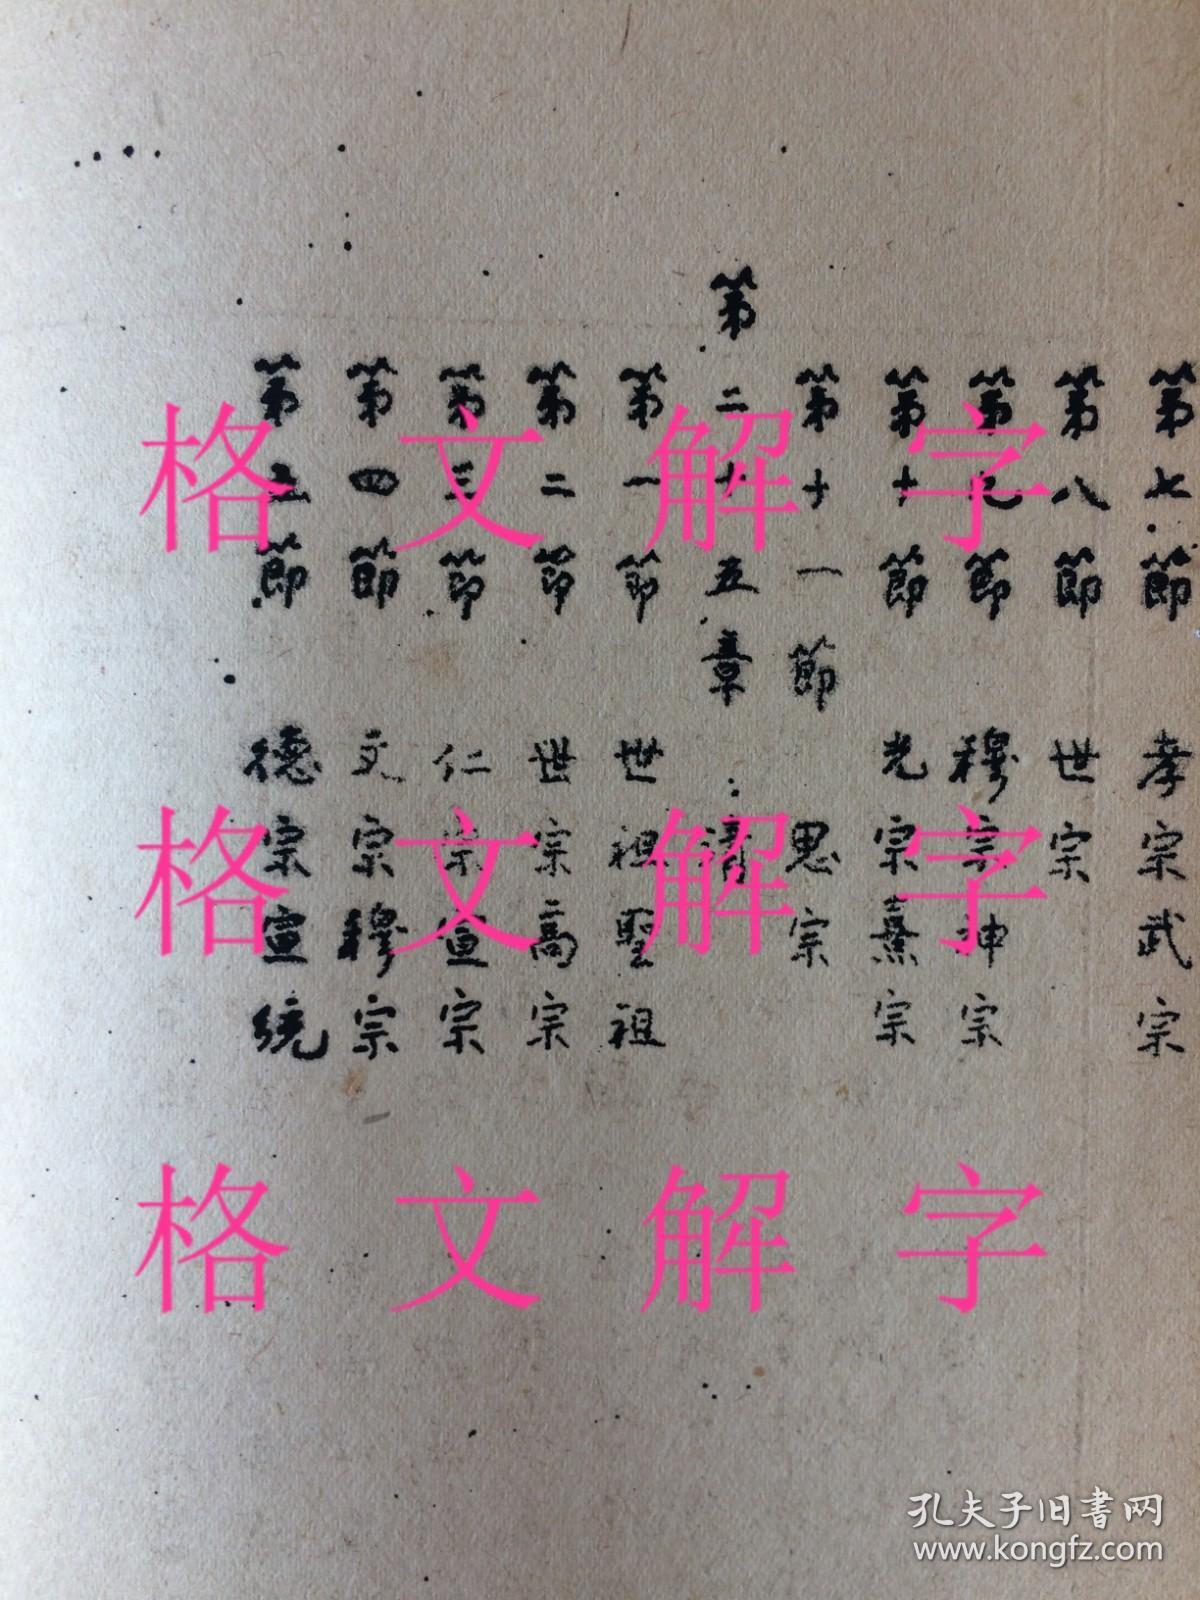 第七節 孝宗武宗
第八節 世宗
第九節 穆宗神宗
第十節 光宗熹宗
第十一節 思宗
第二十五章：清
第一節 世祖聖祖
第二節 世宗高宗
第三節 仁宗宣宗
第四節 文宗穆宗
第五節 德宗宣統
格文解字
格文解字
格文解字
孔夫子旧書网
www.kongfz.com